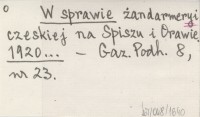 W sprawie żandarmeryi
czeskiej na Spiszu i Orawie.
1920... – Gaz. Podh. 8,
nr 23.